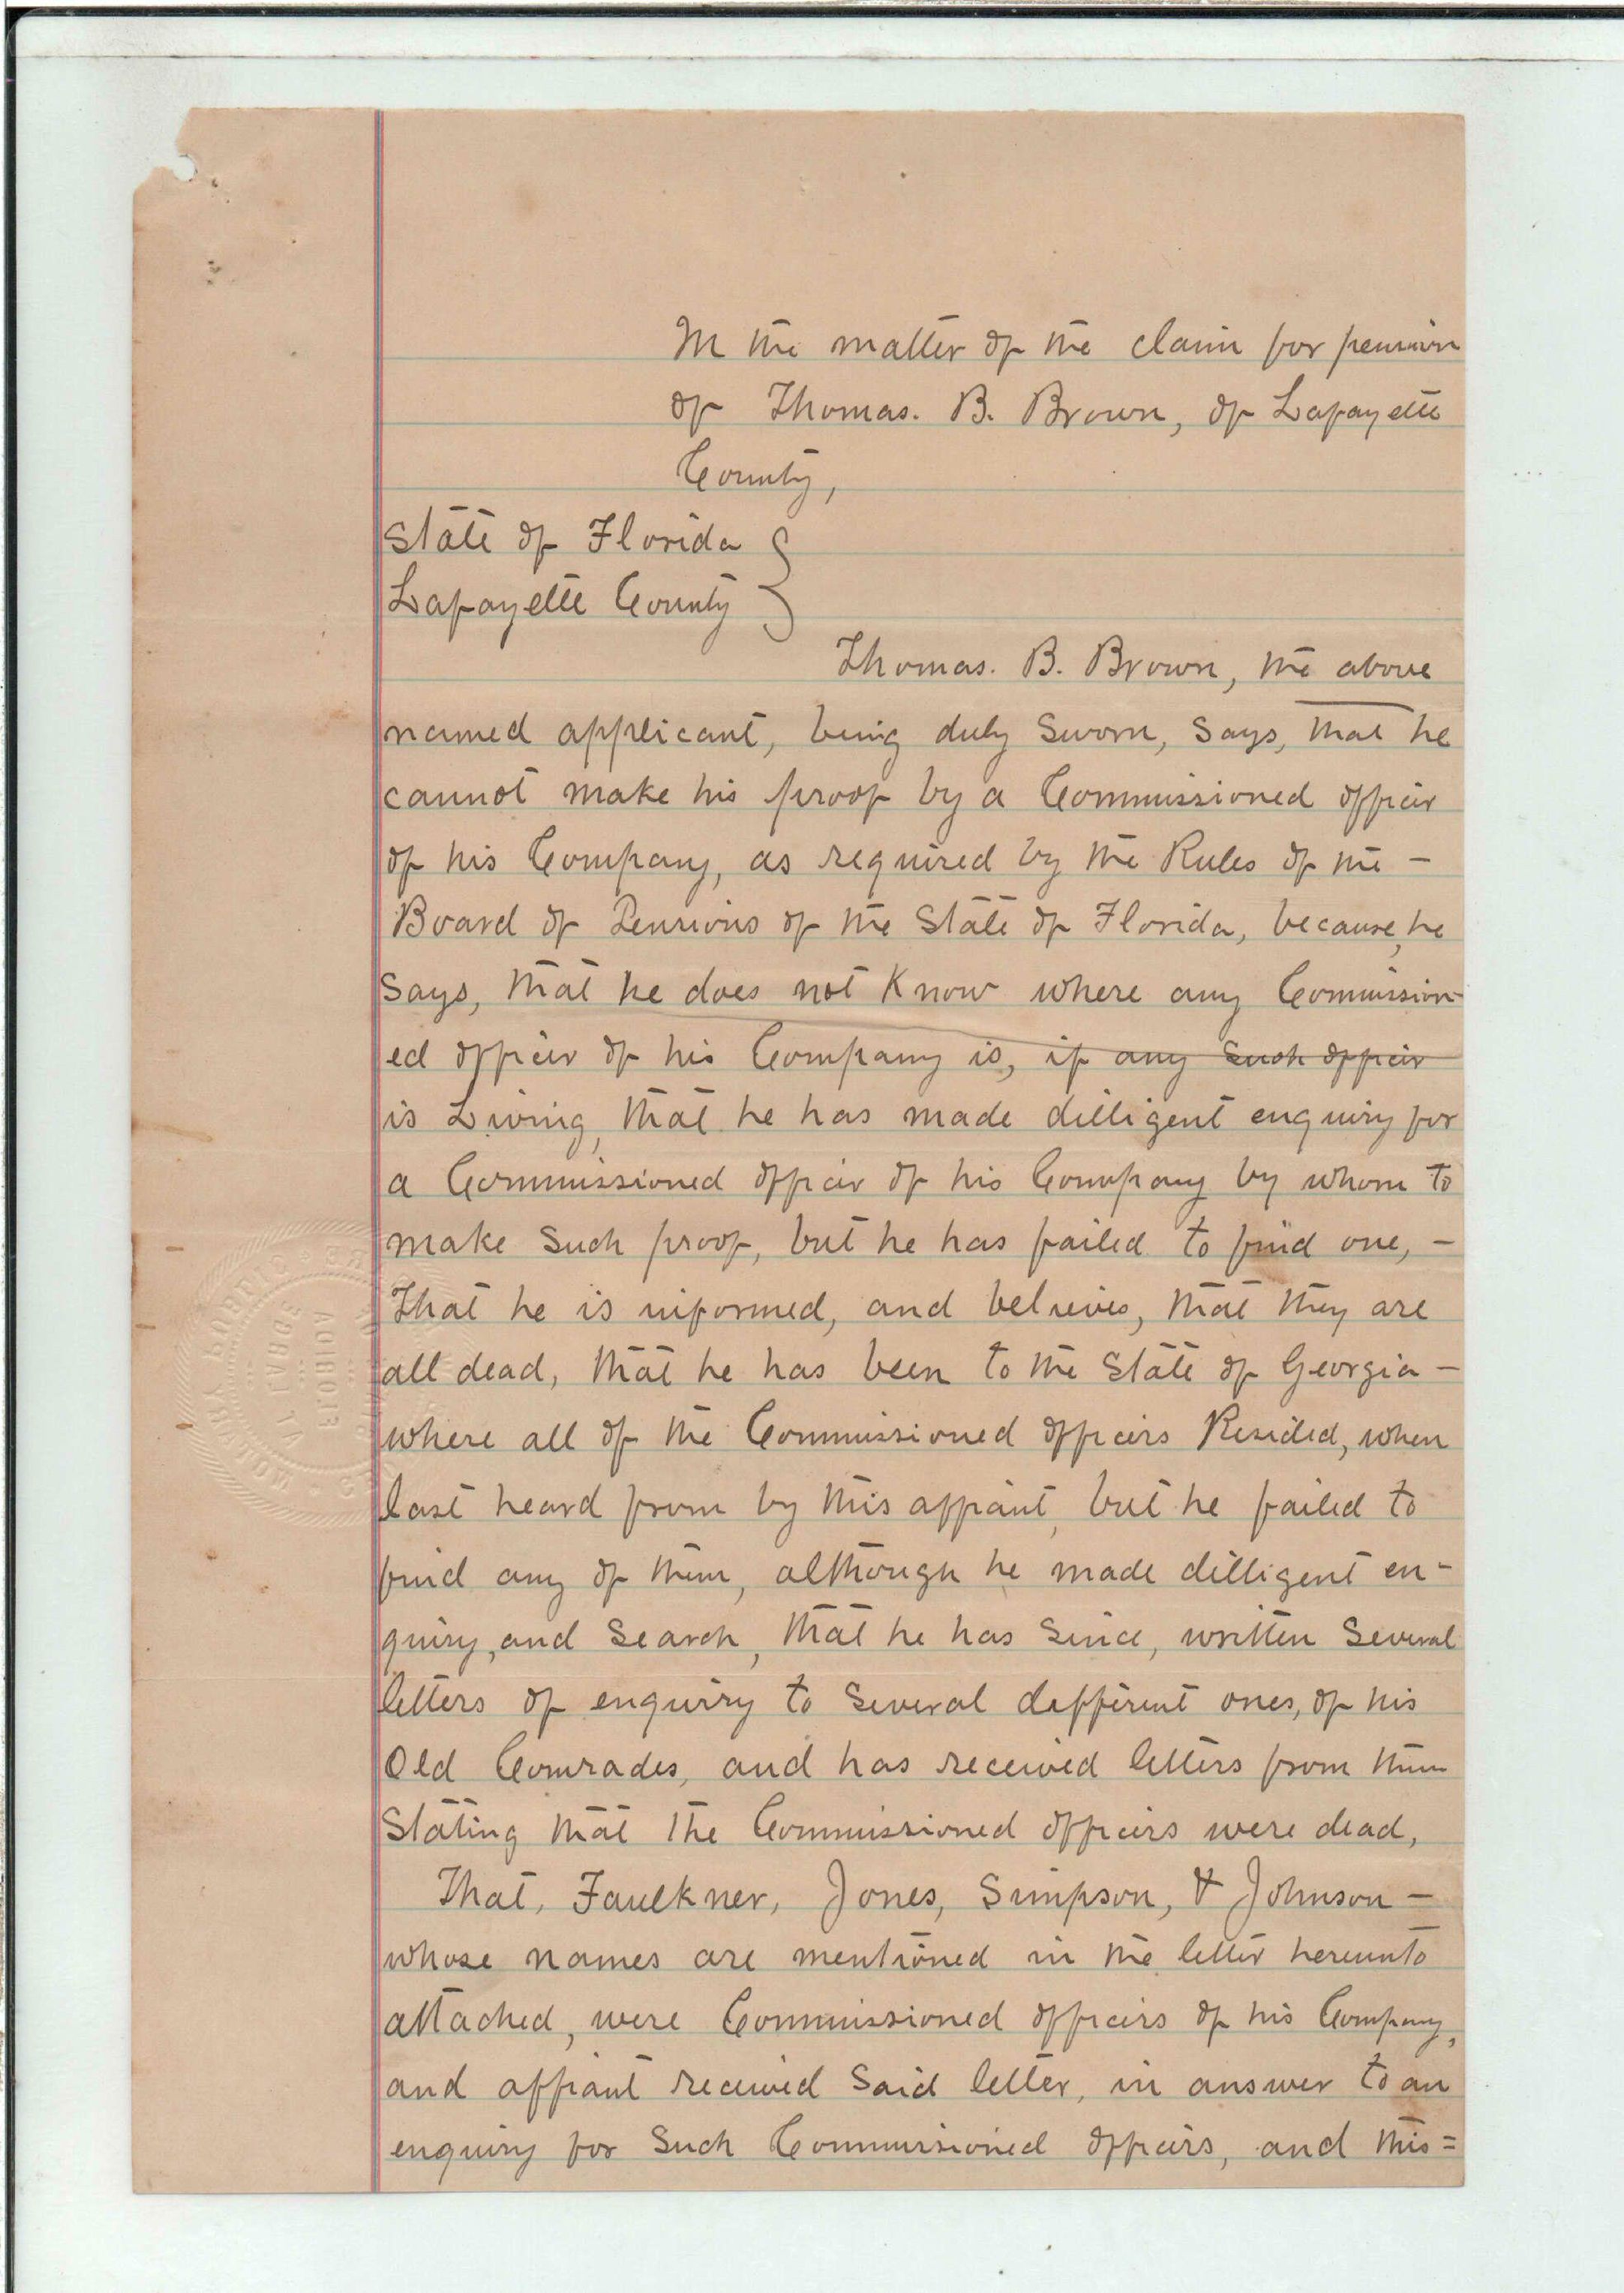 In the matter of the claim for pension
of Thomas. B. Brown, of Lafayette
County,
State of Florida }
Lafayette County }
Thomas. B. Brown, the above
named applicant, being duly sworn, says, that he
cannot make his proof by a Commissioned officer
of his Company, as required by the Rules of the -
Board of Pensions of the State of Florida, because, he
says, that he does not know where any Commission-
ed officer of his Company is, if any such officer
is Living, that he has made dilligent enquiry for
a Commissioned officer of his Company by whom to
make such proof, but he has failed to find one, -
That he is informed, and believes, that they are
all dead, that he has been to the State of Georgia -
where all of the Commissioned officers Resided, when
last heard from by this affiant, but he failed to
find any of them, although he made dilligent en-
quiry, and search, that he has since, written several
letters of enquiry to several different ones, of his
Old Comrades, and has received letters from them
Stating that the Commissioned officers were dead,
That, Faulkner, Jones, Simpson, & Johnson -
whose names are mentioned in the letter hereunto
attached, were Commissioned officers of his Company,
and affiant received said letter, in answer to an
enquiry for such Commissioned officers, and this=
NOTARY PUBLIC
AT LARGE
FLORIDA